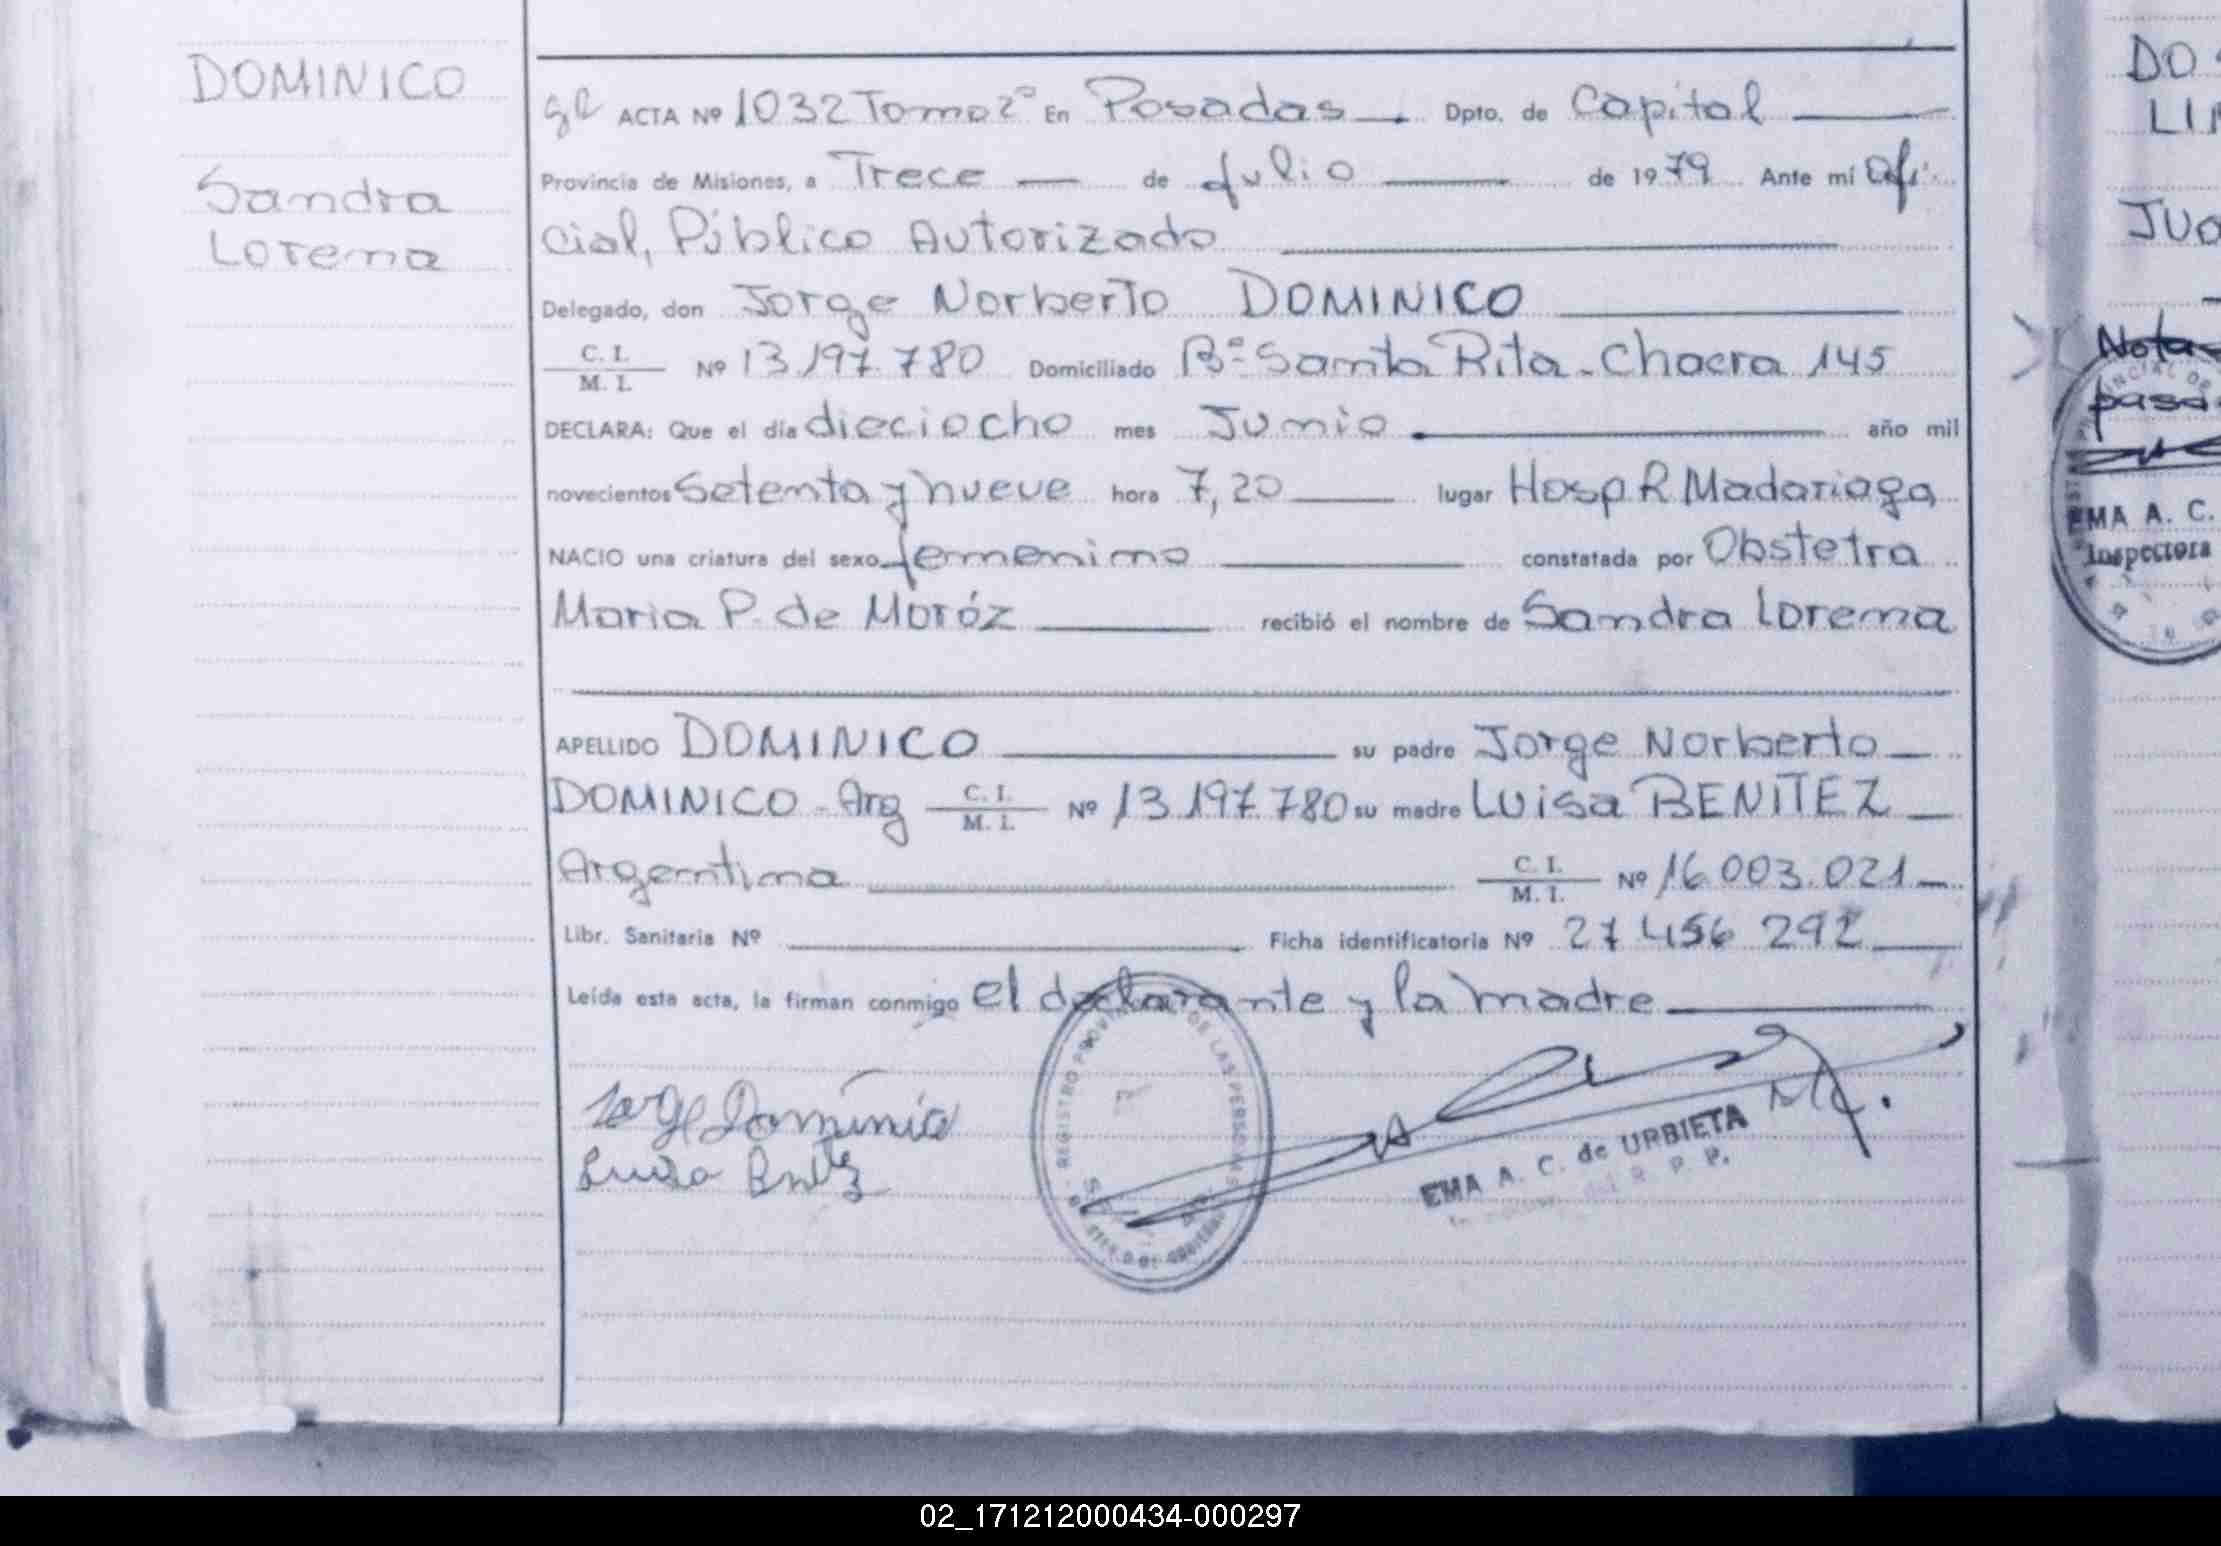 DOMINICO
Sandra
Lorena
ACTA Nº 1032 Tomo 2º En Posadas. Dpto. de Capital
Provincia de Misiones, a Trece de Julio de 1979 Ante mí Ofi
cial, Público Autorizado
Delegado, don Jorge Norberto DOMINICO
C. I. / M. I. Nº 13.197.780 Domiciliado Bº Santa Rita - Chacra 145
DECLARA: Que el día dieciocho mes Junio año mil
novecientos Setenta y nueve hora 7,20 lugar Hosp R Madariaga
NACIO una criatura del sexo femenino constatada por Obstetra
Maria P. de Moróz recibió el nombre de Sandra Lorena
APELLIDO DOMINICO su padre Jorge Norberto
DOMINICO - Arg C. I. / M. I. Nº 13.197.780 su madre Luisa BENITEZ
Argentina C. I. / M. I. Nº 16.003.021
Libr. Sanitaria Nº Ficha identificatoria Nº 27 456 292
Leída esta acta, la firman conmigo el declarante y la madre
REGISTRO PROVINCIAL DE LAS PERSONAS
Jorge Dominico
Luisa
EMA A. C. de URBIETA
R. P. P.
DO
LI
JUA
Nota
pasa
EMA A. C.
Inspectora
02_171212000434-000297